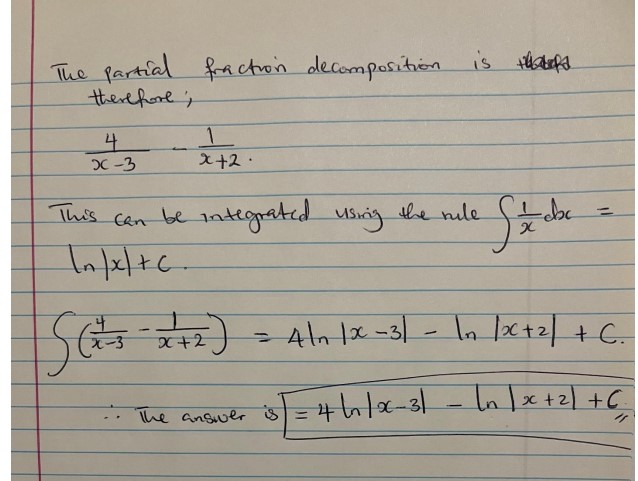 The partial fraction decomposition is
therefore;
4/(x-3) - 1/(x+2).
This can be integrated using the rule ∫ 1/x dx =
ln|x| + C.
∫(4/(x-3) - 1/(x+2)) = 4ln|x-3| - ln|x+2| + C.
∴ The answer is = 4ln|x-3| - ln|x+2| + C